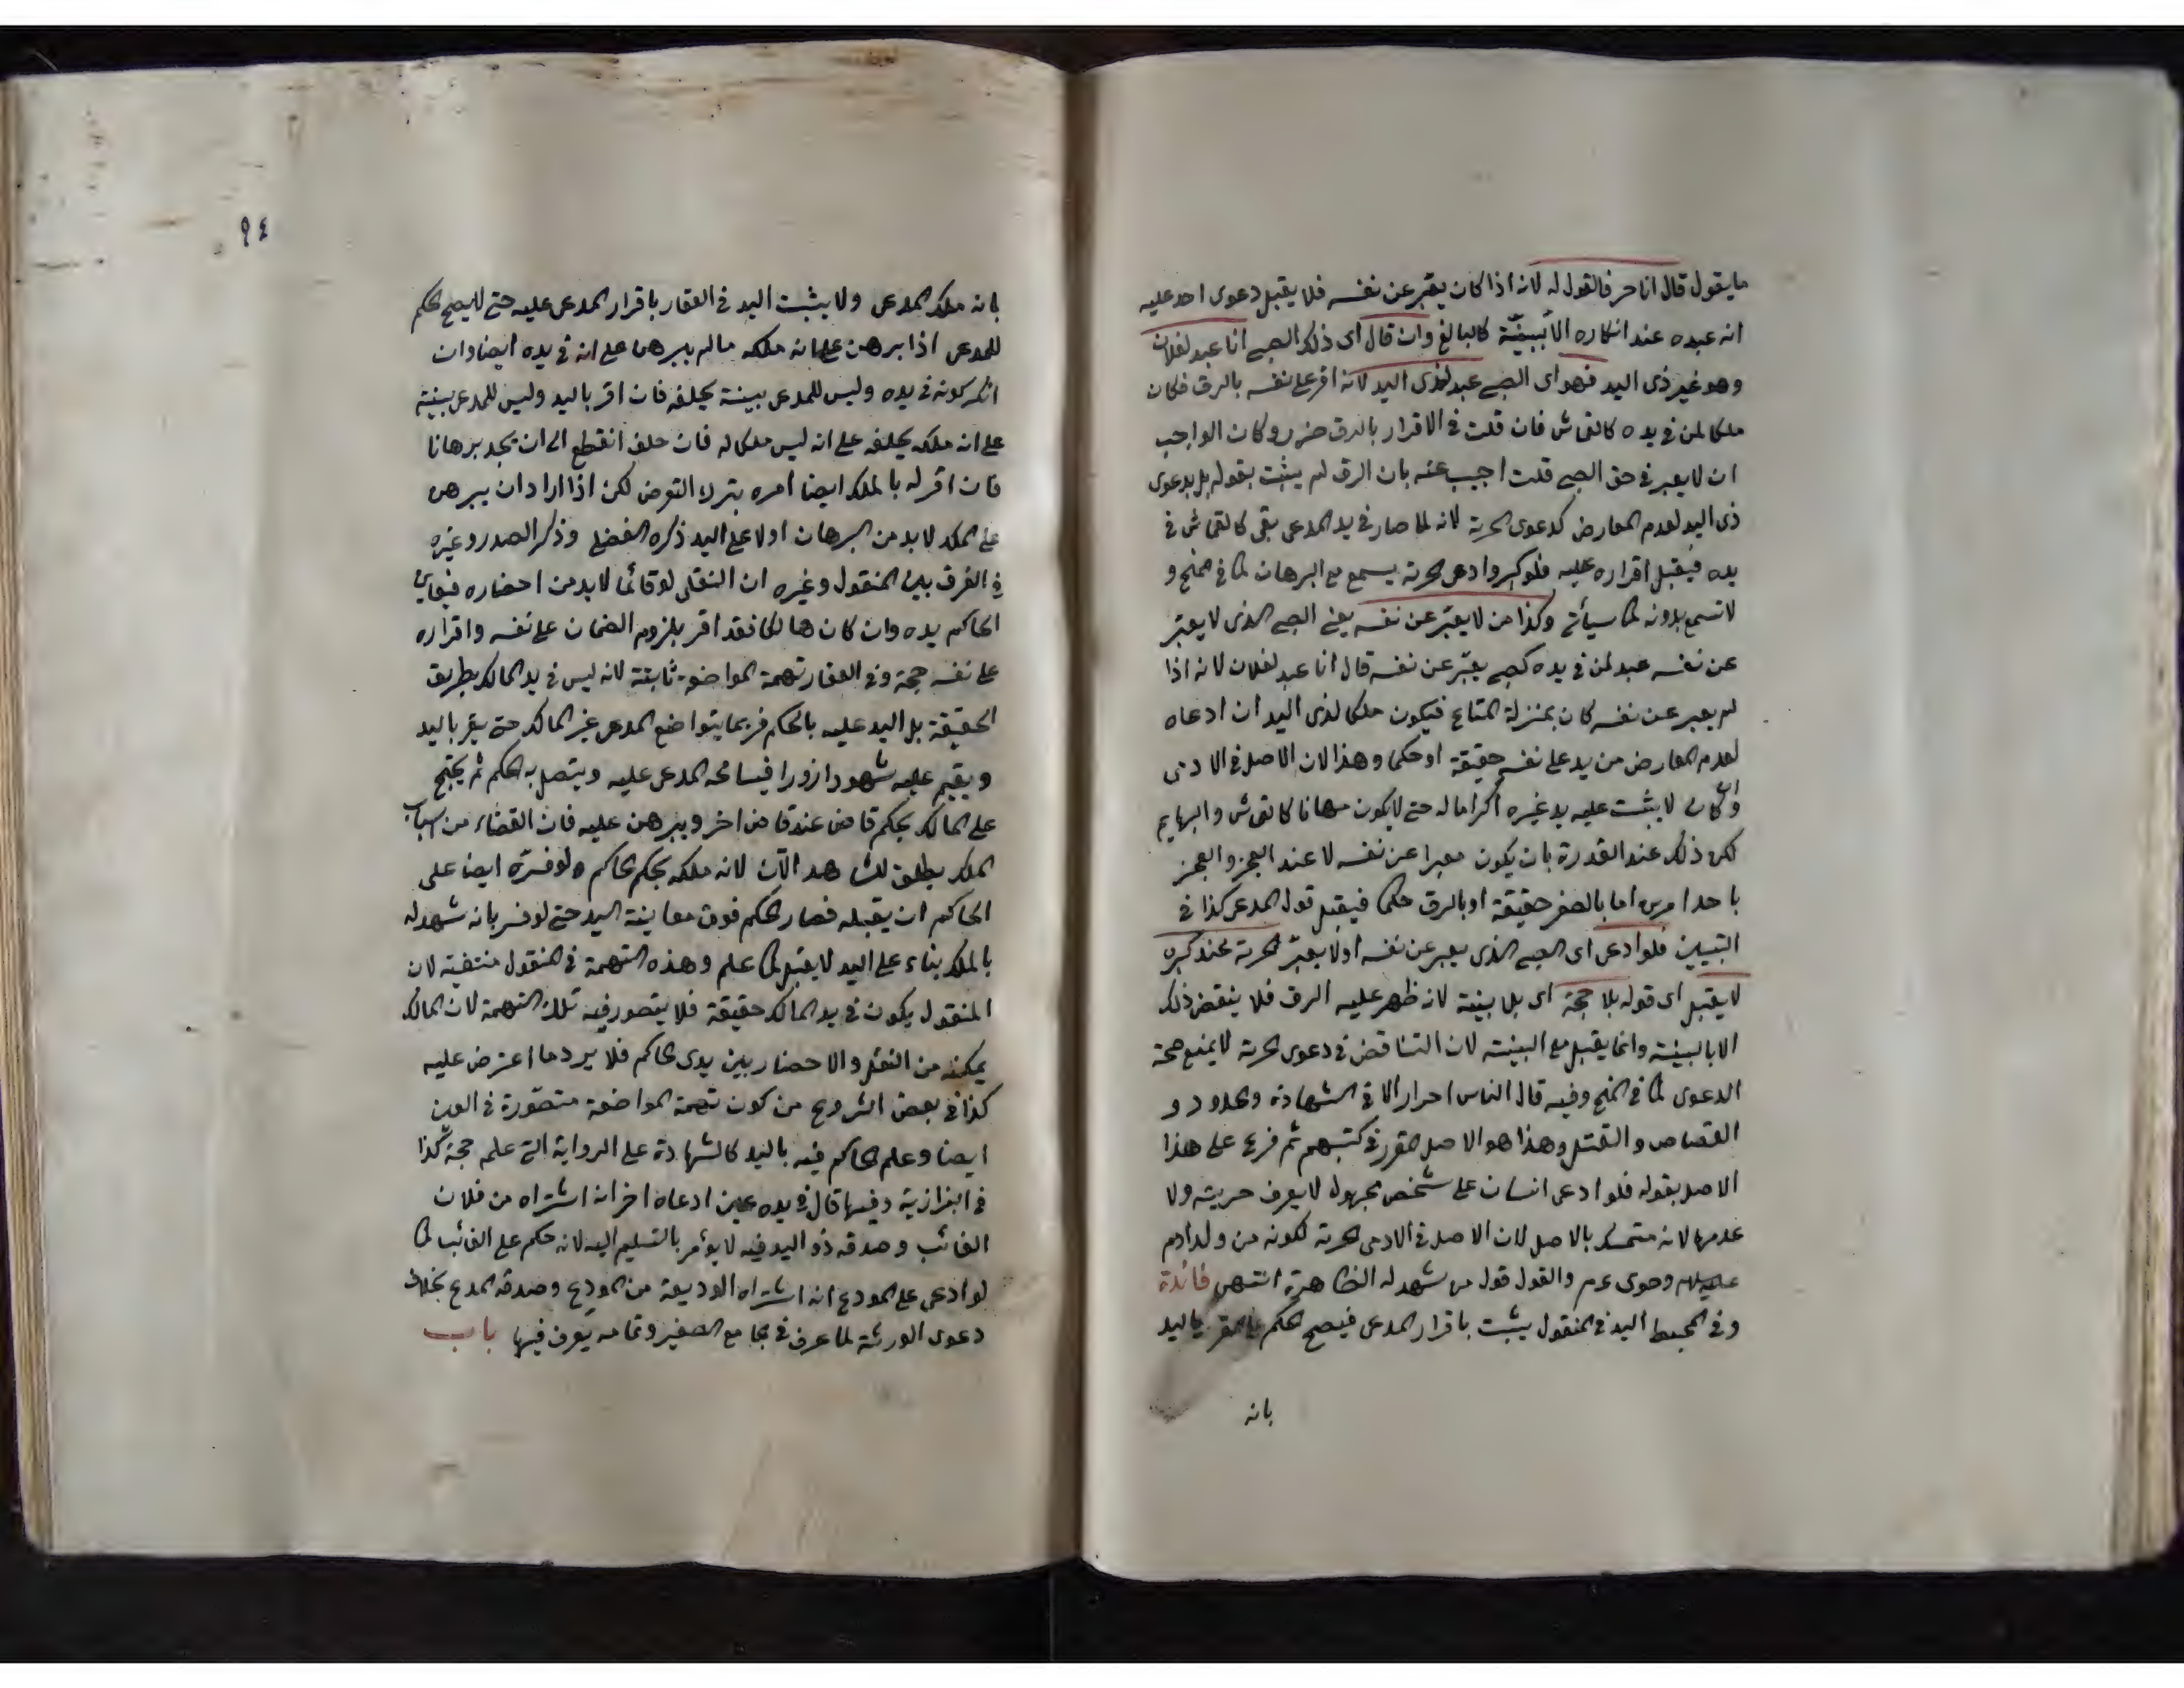 ما يقول قال انا حر فالقول له لانه اذا كان يعبّر عن نفسه فلا يقبل دعوى احد عليه
انه عبده عند انكاره الا ببيّنة كالبالغ وان قال اى ذلك الصبى انا عبد لفلان
وهو غير ذى اليد فهو اى الصبى عبد لذى اليد لانه اقر على نفسه بالرق فكان
ملكا لمن فى يده كالقماش فان قلت فى الاقرار بالرق ضرر وكان الواجب
ان لا يعبر فى حق الصبى قلت اجيب عنه بان الرق لم يثبت بقوله بل بدعوى
ذى اليد لعدم المعارض كدعوى الحرية لانه لما صار فى يد المدعى بقى كالقماش فى
يده فيقبل اقراره عليه فلو كبر وادعى الحرية يسمع مع البرهان كما فى المنح و
لا تسمع بدونه كما سيأتى وكذا من لا يعبّر عن نفسه يعنى الصبى الذى لا يعبّر
عن نفسه عبد لمن فى يده كصبى يعبّر عن نفسه قال انا عبد لفلان لانه اذا
لم يعبر عن نفسه كان بمنزلة المتاع فيكون ملكا لذى اليد ان ادعاه
لعدم المعارض من يد على نفسه حقيقة او حكما وهذا لان الاصل فى الادمى
وان كان لا يثبت عليه يد غيره اكراما له حتى لا يكون مهانا كالقماش والبهايم
لكن ذلك عند القدرة بان يكون معبرا عن نفسه لا عند العجز والعجز
باحد امرين اما بالصغر حقيقة او بالرق حكما فيقبل قول المدعى كذا فى
التبيين فلو ادعى اى الصبى الذى يعبر عن نفسه اولا يعبّر الحرية عند كبره
لا يقبل اى قوله بلا حجة اى بلا بينة لانه ظهر عليه الرق فلا ينقض ذلك
الا بالبينة وانما يقبل مع البينة لان التناقض فى دعوى الحرية لا يمنع صحة
الدعوى كما فى المنح وفيه قال الناس احرار الا فى الشهادة والحدود و
القصاص والقتل وهذا هو الاصل المقرر فى كتبهم ثم فرع على هذا
الاصل بقوله فلو ادعى انسان على شخص مجهول لا يعرف حريته ولا
عدمها لانه متمسك بالاصل لان الاصل فى الادمى الحرية لكونه من ولد ادم
وحوى عم والقول قول من شهد له الظاهرة انتهى فائدة
وفى المحيط اليد فى المنقول يثبت باقرار المدعى فيصح الحكم على المقر باليد
بانه
٩٤
بانه ملك المدعى ولا يثبت اليد فى العقار باقرار المدعى عليه حتى لا يصح الحكم
للمدعى اذا برهن على انه ملكه ما لم يبرهن على انه فى يده ايضا وان
انكر كونه فى يده وليس للمدعى بينة يحلفه فان اقر باليد وليس للمدعى بينة
على انه ملكه يحلفه على انه ليس ملكا له فان حلف انقطع الى ان يجد برهانا
فان اقر له بالملك ايضا امره بترك التعرض لكن اذا اراد ان يبرهن
على الملك لا بد من البرهان اولا على اليد ذكره الفضلى وذكر الصدر وغيره
فى الفرق بين المنقول وغيره ان النقلى لو قائما لا بد من احضاره فيعاين
الحاكم يده وان كان هالكا فقد اقر بلزوم الضمان على نفسه واقراره
على نفسه حجة وفى العقار تهمة المواضعة ثابتة لانه ليس فى يد المالك بطريق
الحقيقة بل اليد عليه بالحكم فربما يتواضع المدعى غير المالك حتى يقر باليد
ويقيم عليه شهودا زورا فيسامحه المدعى عليه ويتصل به الحكم ثم يحتج
على المالك بحكم قاض عند قاض اخر ويبرهن عليه فان القضاء من اسباب
الملك يطلق للشاهد الآن لانه ملكه بحكم الحاكم ولو فسّره ايضا على
الحاكم ان يقبله فصار الحكم فوق معاينة اليد حتى لو فسر بانه شهد له
بالملك بناء على اليد لا يقبل كما علم وهذه التهمة فى المنقول منتفية لان
المنقول يكون فى يد المالك حقيقة فلا يتصور فيه تلك التهمة لان المالك
يمكنه من النقل والاحضار بين يدى الحاكم فلا يرد ما اعترض عليه
كذا فى بعض الشروح من كون تهمة المواضعة متصوّرة فى العين
ايضا وعلم الحاكم فيه باليد كالشهادة على الرواية التى علمه حجة كذا
فى البزازية وفيها قال فى يده عين ادعاه اخر انه اشتراه من فلان
الغائب وصدقه ذو اليد فيه لا يؤمر بالتسليم اليه لانه حكم على الغائب كما
لو ادعى على المودع انه اشتراه الوديعة من المودع وصدقه المدع بخلاف
دعوى الورثة لما عرف فى الجامع الصغير وتمامه يعرف فيها باب